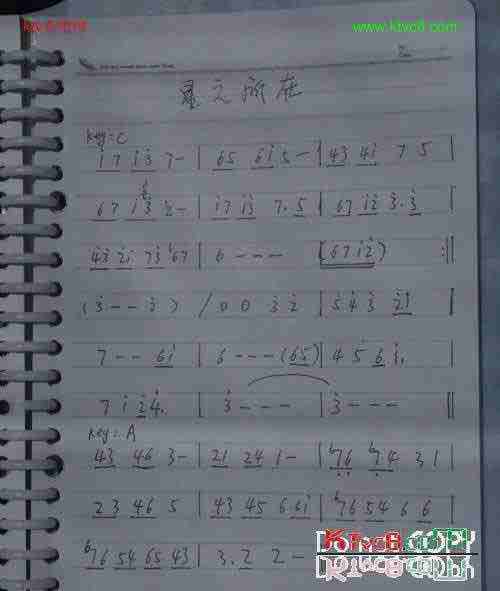 www.ktvc8.com
星之所在
Key: C
1̇ 7 1̇ 3̇ 7 - | 6 5 6 1̇ 5 - | 4̇ 3̇ 4̇ 1̇ 7 5
6 7 1̇ 3̇ 2̇ - | 1̇ 7 1̇ 3̇ 7 . 5 | 6 7 1̇ 2̇ 3̇ . 3̇
4̇ 3̇ 2̇ 1̇ 7 3̇ ♭6 7 | 6 - - - | (6 7 1̇ 2̇) :||
(3̇ - - 3̇) / 0 0 3̇ 2̇ | 5̇ 4̇ 3̇ 2̇ 1̇ |
7 - - 6 1̇ | 6 - - - (6 5) | 4 5 6 1̇. |
7 1̇ 2̇ 4̇. | 3̇ - - - | 3̇ - - - ||
Key: A
4 3 4 6 3 - | 2 1 2 4 1 - | ♭7̣ 6̣ ♭7̣ 4 3 1 |
2 3 4 6 5 | 4 3 4 5 6 6 1̇ | ♭7 6 5 4 6 6 |
♭7 6 5 4 6 5 4 3 | 3 . 2 2 -
KTVC8 COPY